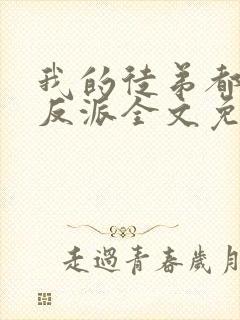 我的徒弟都
反派全文免
走過青春歲月